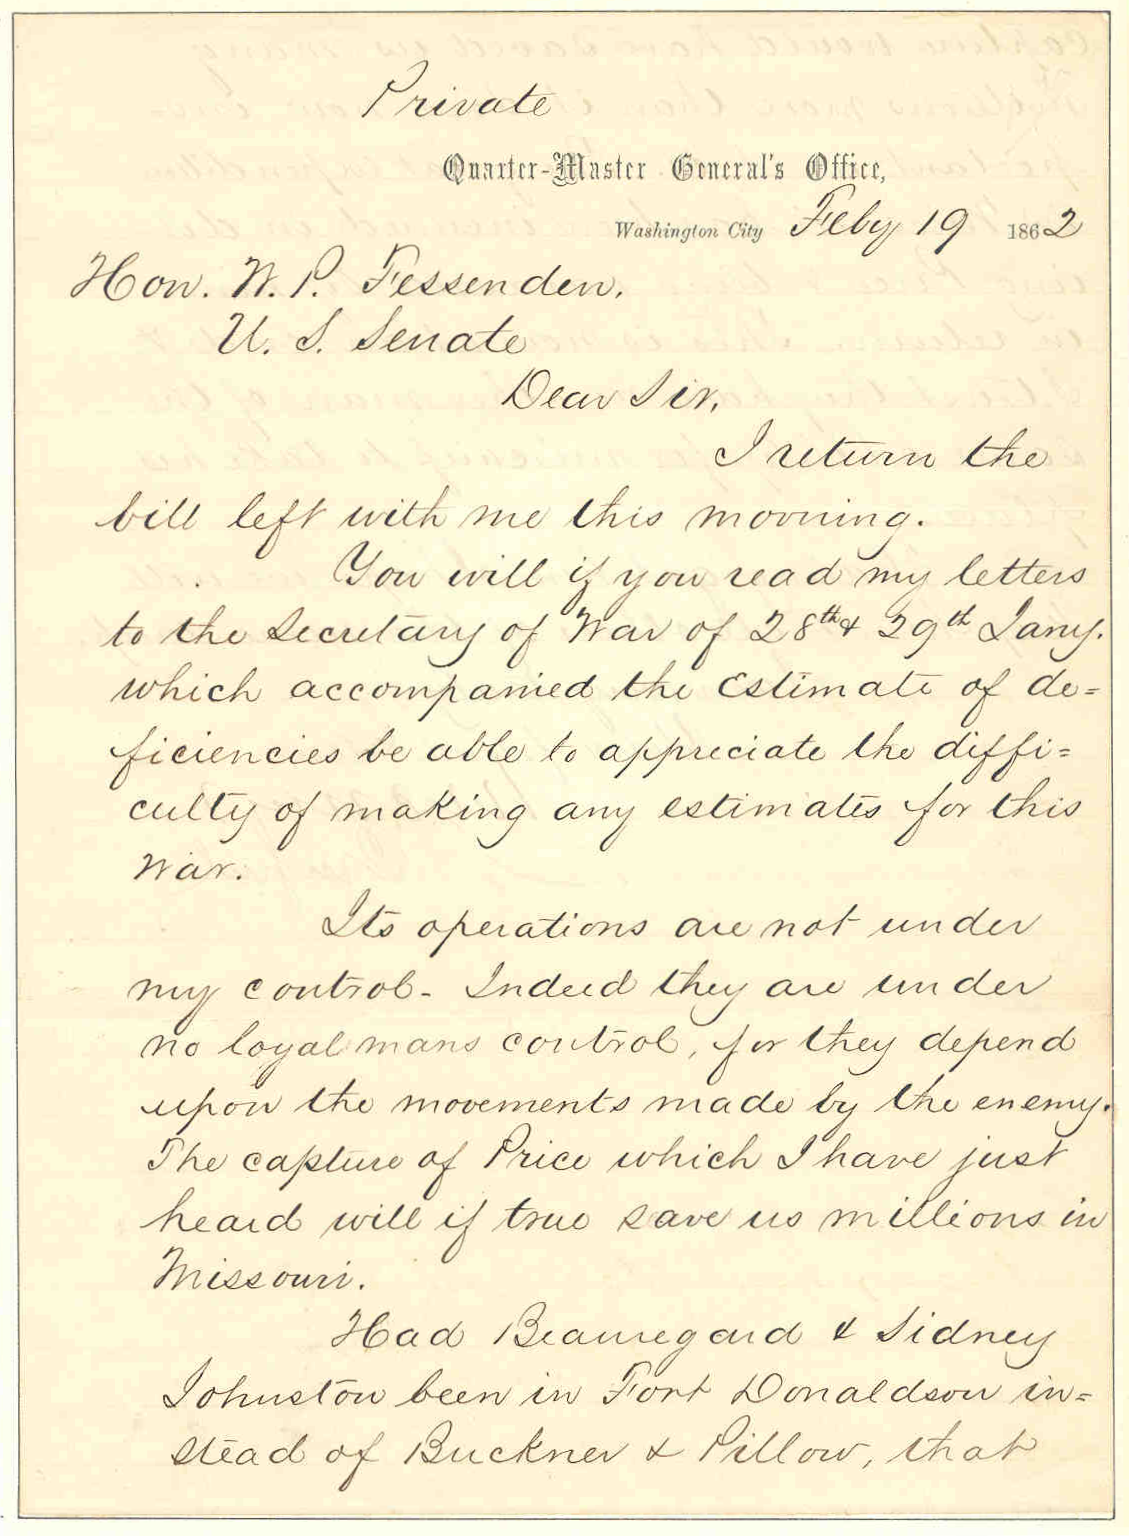 Private
Quarter-Master General's Office,
Washington City Feby 19 1862
Hon. W. P. Fessenden,
U. S. Senate
Dear Sir,
I return the
bill left with me this morning.
You will if you read my letters
to the Secretary of War of 28th & 29th Jany.
which accompanied the Estimate of de=
ficiencies be able to appreciate the diffi=
culty of making any estimates for this
War.
Its operations are not under
my control - Indeed they are under
no loyal mans control, for they depend
upon the movements made by the enemy.
The capture of Price which I have just
heard will if true save us millions in
Missouri.
Had Beauregard & Sidney
Johnston been in Fort Donaldson in=
stead of Buckner & Pillow, that